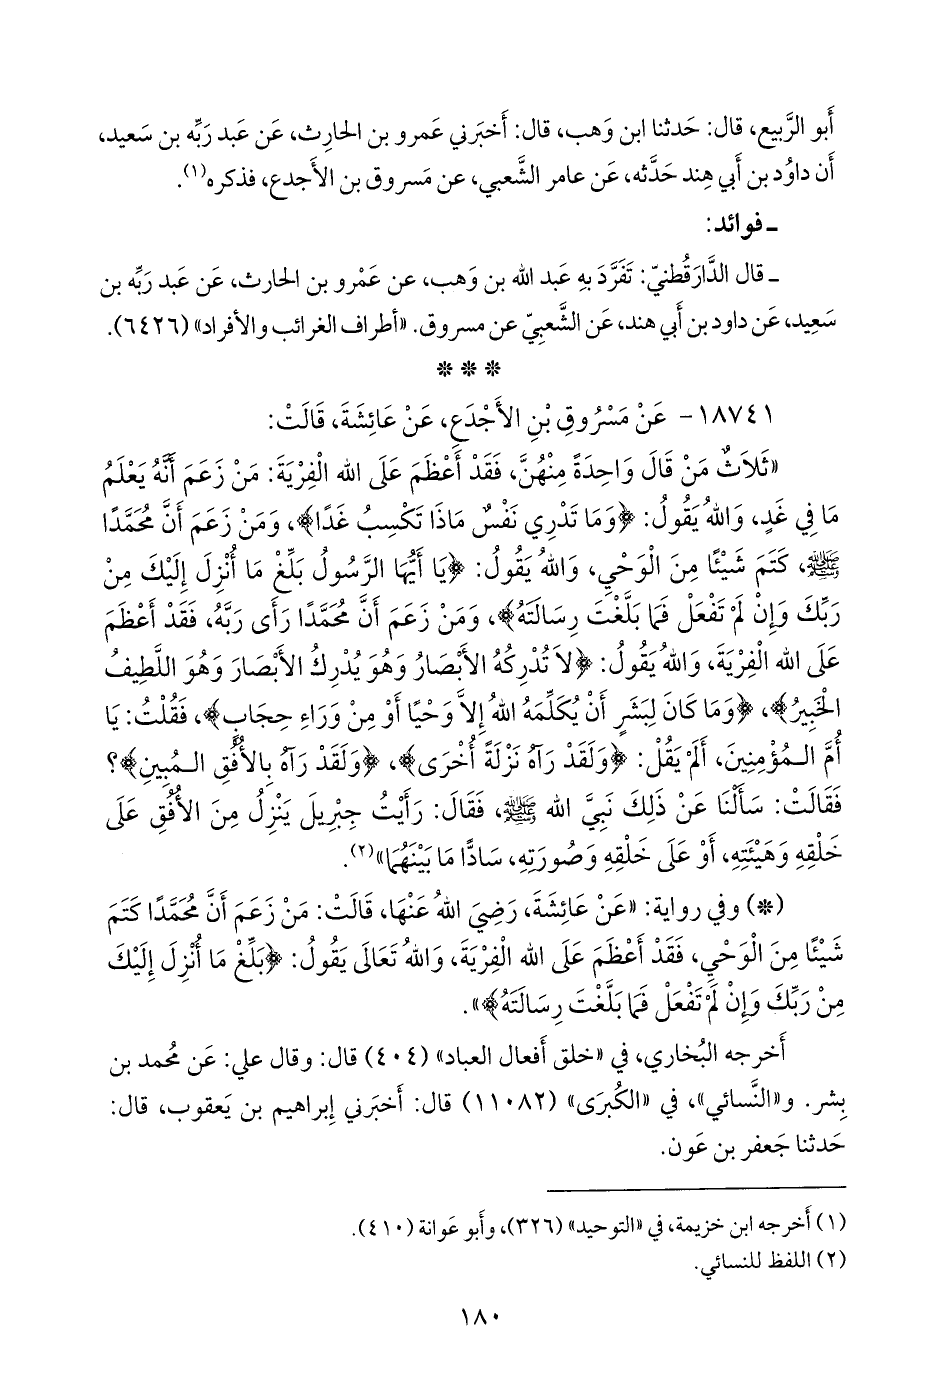 أَبو الرَّبيع، قال: حَدثنا ابن وَهب، قال: أَخبَرني عَمرو بن الحارِث، عَن عَبد رَبِّه بن سَعيد،
أَن داوُد بن أَبي هِند حَدَّثه، عَن عامر الشَّعبي، عن مَسروق بن الأَجدع، فذكره(١).
ـ فوائد:
ـ قال الدَّارَقُطنيّ: تَفَرَّدَ بِهِ عَبد الله بن وَهب، عن عَمْرو بن الحارث، عَن عَبد رَبِّه بن
سَعِيد، عَن داود بن أَبي هند، عَن الشَّعبِيّ عن مسروق. «أطراف الغرائب والأفراد» (٦٤٢٦).
* * *
١٨٧٤١- عَنْ مَسْرُوقِ بْنِ الأَجْدَعِ، عَنْ عَائِشَةَ، قَالَتْ:
«ثَلاَثٌ مَنْ قَالَ وَاحِدَةً مِنْهُنَّ، فَقَدْ أَعْظَمَ عَلَى الله الْفِرْيَةَ: مَنْ زَعَمَ أَنَّهُ يَعْلَمُ
مَا فِي غَدٍ، وَاللهُ يَقُولُ: ﴿وَمَا تَدْرِي نَفْسٌ مَاذَا تَكْسِبُ غَدًا﴾، وَمَنْ زَعَمَ أَنَّ مُحَمَّدًا
ﷺ، كَتَمَ شَيْئًا مِنَ الْوَحْيِ، وَاللهُ يَقُولُ: ﴿يَا أَيُّهَا الرَّسُولُ بَلِّغْ مَا أُنْزِلَ إِلَيْكَ مِنْ
رَبِّكَ وَإِنْ لَمْ تَفْعَلْ فَمَا بَلَّغْتَ رِسَالَتَهُ﴾، وَمَنْ زَعَمَ أَنَّ مُحَمَّدًا رَأَى رَبَّهُ، فَقَدْ أَعْظَمَ
عَلَى الله الْفِرْيَةَ، وَاللهُ يَقُولُ: ﴿لاَ تُدْرِكُهُ الأَبْصَارُ وَهُوَ يُدْرِكُ الأَبْصَارَ وَهُوَ اللَّطِيفُ
الْخَبِيرُ﴾، ﴿وَمَا كَانَ لِبَشَرٍ أَنْ يُكَلِّمَهُ اللهُ إِلاَّ وَحْيًا أَوْ مِنْ وَرَاءِ حِجَابٍ﴾، فَقُلْتُ: يَا
أُمَّ الْمُؤْمِنِينَ، أَلَمْ يَقُلْ: ﴿وَلَقَدْ رَآهُ نَزْلَةً أُخْرَى﴾، ﴿وَلَقَدْ رَآهُ بِالأُفُقِ الْمُبِينِ﴾؟
فَقَالَتْ: سَأَلْنَا عَنْ ذَلِكَ نَبِيَّ الله ﷺ، فَقَالَ: رَأَيْتُ جِبْرِيلَ يَنْزِلُ مِنَ الأُفُقِ عَلَى
خَلْقِهِ وَهَيْئَتِهِ، أَوْ عَلَى خَلْقِهِ وَصُورَتِهِ، سَادًّا مَا بَيْنَهُمَا»(٢).
(*) وفي رواية: «عَنْ عَائِشَةَ، رَضِيَ اللهُ عَنْهَا، قَالَتْ: مَنْ زَعَمَ أَنَّ مُحَمَّدًا كَتَمَ
شَيْئًا مِنَ الْوَحْيِ، فَقَدْ أَعْظَمَ عَلَى الله الْفِرْيَةَ، وَاللهُ تَعَالَى يَقُولُ: ﴿بَلِّغْ مَا أُنْزِلَ إِلَيْكَ
مِنْ رَبِّكَ وَإِنْ لَمْ تَفْعَلْ فَمَا بَلَّغْتَ رِسَالَتَهُ﴾».
أَخرجه البُخاري، في «خلق أفعال العباد» (٤٠٤) قال: وقال علي: عَن مُحمد بن
بِشر. و«النَّسائي»، في «الكُبرَى» (١١٠٨٢) قال: أَخبَرني إِبراهيم بن يَعقوب، قال:
حَدثنا جَعفر بن عَون.
(١) أَخرجه ابن خزيمة، في «التوحيد» (٣٢٦)، وأَبو عَوانة (٤١٠).
(٢) اللفظ للنسائي.
١٨٠